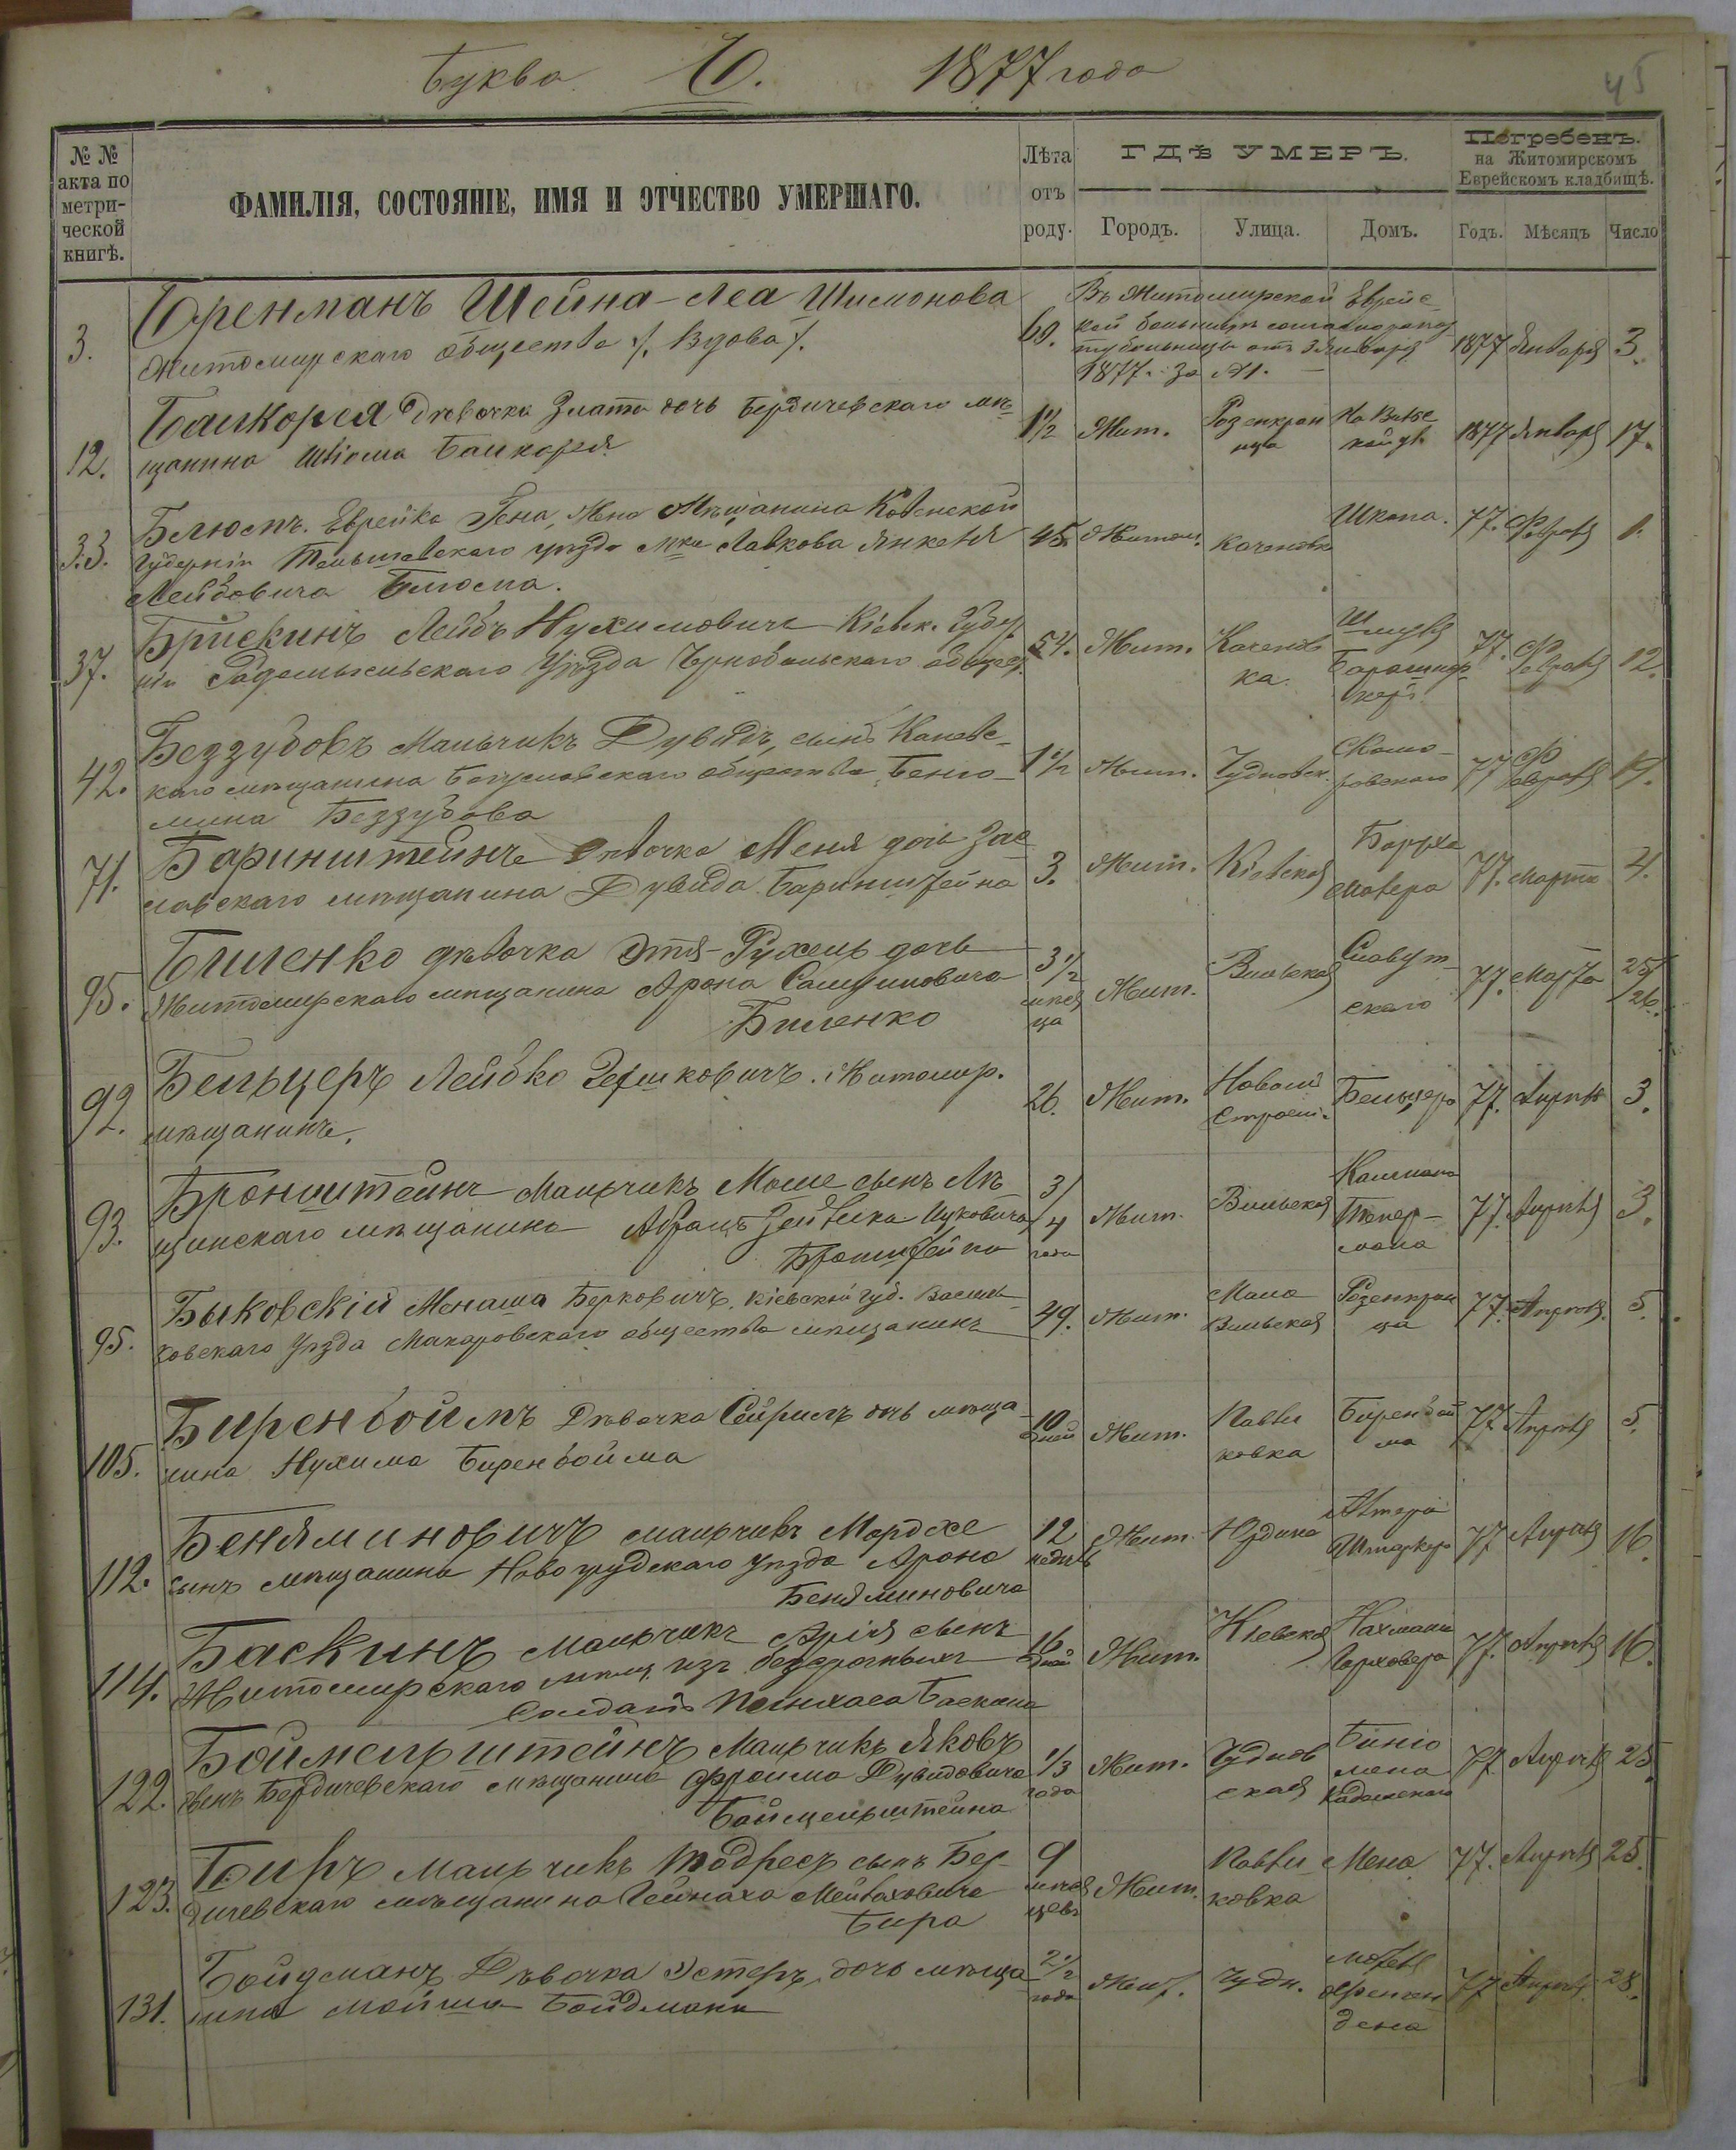 Буква Б. 1877 года
45
№ №
акта по
метри-
ческой
книгѣ.
ФАМИЛІЯ, СОСТОЯНІЕ, ИМЯ И ОТЧЕСТВО УМЕРШАГО.
Лѣта
отъ
роду.
ГДѢ УМЕРЪ.
Городъ.
Улица.
Домъ.
Погребенъ.
на Житомирскомъ
Еврейскомъ кладбищѣ.
Годъ.
Мѣсяцъ
Число
3. Бренманъ Шейна-Леа Шимонова
Житомирскаго общества /. вдова /.
60.
Въ Житомирской Еврейс-
кой больницѣ согласно
больницы отъ 3 Января
1877 г. за №1.
1877 Января 3.
12. Банкорея Дѣвочка Злата дочь Бердичевскаго мѣ-
щанина Шлiома Банкорея
1 1/2 Жит. Розенкран
ца
На Вильс
кой ул. 1877 Января 17.
33. Блюмъ. Еврейка Гена, Жена Мѣщанина Ковенской
Губерніи Тельшевскаго уѣзда Мка Лавкова Янкеля
Лейбовича Блюма.
45. Житом. Каченовка Школа. 77. Февраля 1.
37. Брискинъ Лейбъ Нухимовичъ Кіевск. Губер
ніи Радомысльскаго Уѣзда Чернобыльскаго общес.
54. Жит. Каченов
ка.
Шмуля
77. Февраля 12.
42. Беззубовъ Мальчикъ Дувидъ, сынъ Каневс-
каго мѣщанина Богуславскаго общества Беніо-
мина Беззубова
1 1/2 Жит. Чудновск. Комо-
ровскаго 77 Февраля 19.
71. Баринштейнъ Дѣвочка Меня дочь Зас
лавскаго мѣщанина Дувида Баринштейна
3. Жит. Кіевская Боруха
77. Марта 4.
95. Биленко дѣвочка Этя-Рухель дочь
Житомирскаго мѣщанина Арона Самуиловича
Биленко
3 1/2
мѣся
ца
Жит. Вильская Славут-
скаго 77. Марта 25/26.
92. Бельцеръ Лейбко Гершковичъ. Житомир.
мѣщанинъ.
26. Жит. Новой
Строен. Бельцера 77. Апрѣля 3.
93. Бронштейнъ Мальчикъ Моше сынъ Лѣ
щинскаго мѣщанина Абрамъ Зейлика Ицковича
Бронштейна
3/4
года
Жит. Вильская Калмана
77. Апрѣля 3.
95. Быковскій Менаша Берковичъ. Кіевской губ. Василь-
ковскаго Уѣзда Макаровскаго общества мѣщанинъ
49. Жит. Мало
Вильская Розенкран
ца 77. Апрѣля. 5.
105. Биренбоймъ Дѣвочка Сейрилъ дочь мѣща-
нина Нухима Биренбойма
10
дней
Жит. Павли
ковка Биренбой
ма 77 Апрѣля 5.
112. Беняминовичъ мальчикъ Мордхе
сынъ мѣщанина Новогрудскаго уѣзда Арона
Беняминовича
12
недѣль
Жит. Юдика
77 Апрѣля 16.
114. Баскинъ мальчикъ Арія сынъ
Житомирскаго мѣщ. изъ безсрочныхъ
Солдатъ Пинхаса Баскина
16
дней
Жит. Кіевская Нахмана
77. Апрѣля 16.
122. Боймельштейнъ Мальчикъ Яковъ
сынъ Бердичевскаго мѣщанина Фроима Дувидовича
Боймельштейна
1/3
года
Жит. Чуднов
ская Бинiо
мена
77 Апрѣля 25.
123. Биръ мальчикъ Тодресъ сынъ Бер-
дичевскаго мѣщанина Гейнаха Мейлаховича
Бира
9
мѣся
цевъ
Жит. Павли
ковка Мена 77. Апрѣля 25.
131. Бойдманъ Дѣвочка Эстеръ, дочь мѣща
нина Мойша Бойдмана
2 1/2
года
Жит. Чудн.
77 Апрѣля 28.